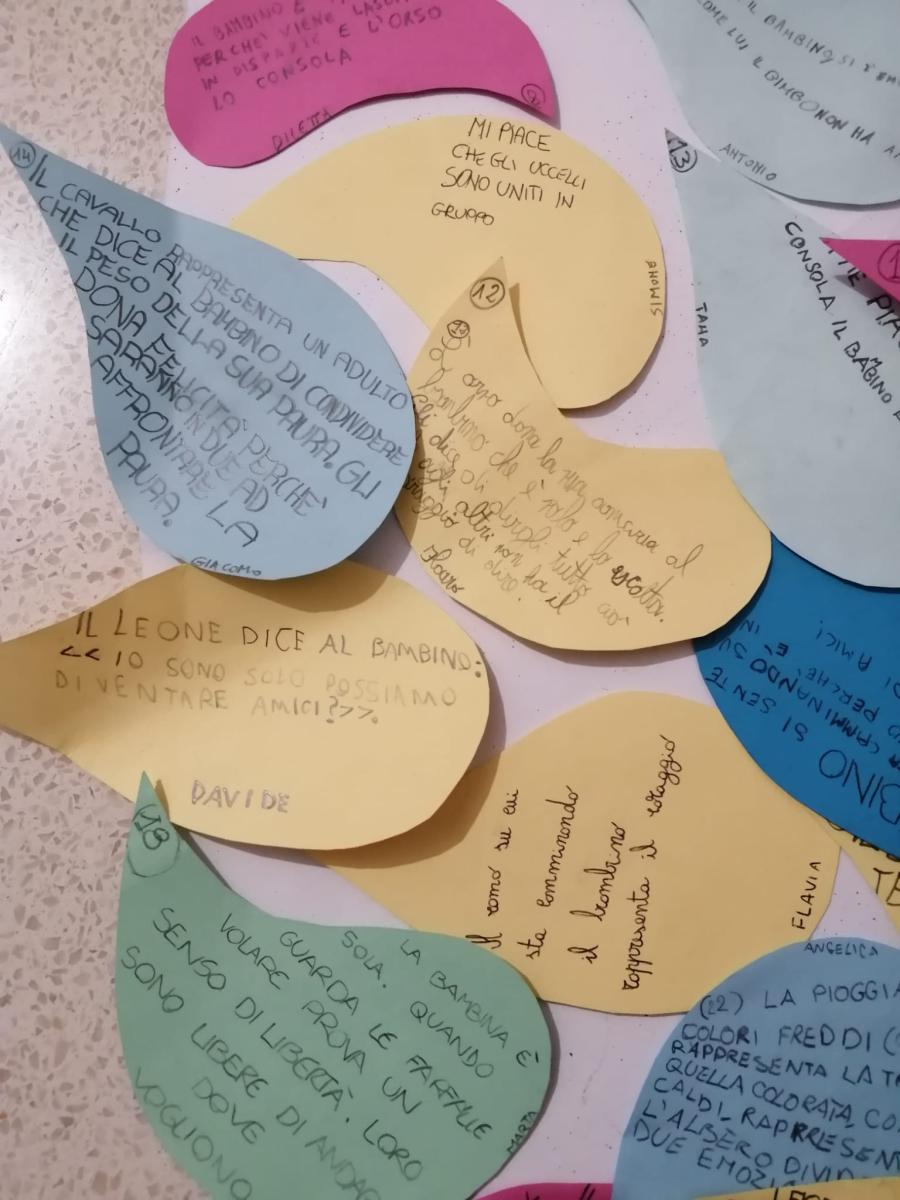 IL BAMBINO È
PERCHÈ VIENE
IN DISPARTE E L'ORSO
LO CONSOLA
DILETTA
IL BAMBINO SI
COME LUI, IL GIMBO NON HA
ANTONIO
MI PIACE
CHE GLI UCCELLI
SONO UNITI IN
GRUPPO
SIMONE
13
CONSOLA IL BAMBINO
TAHA
14
IL CAVALLO RAPPRESENTA UN ADULTO
CHE DICE AL BAMBINO DI CONDIVIDERE
IL PESO DELLA SUA PAURA. GLI
DONA FELICITÀ PERCHÈ
SARANNO IN DUE AD
AFFRONTARE LA
PAURA.
GIACOMO
12
L'orso dona la sua amicizia al
bambino che è solo e lo ascolta.
Gli dice di dirgli tutto ciò
agli altri non ha il
coraggio di dire.
IL LEONE DICE AL BAMBINO:
<<IO SONO SOLO POSSIAMO
DIVENTARE AMICI?>>.
DAVIDE
SI SENTE
CAMMINANDO SU
PERCHÈ È IN
AMICI!
Il ramo su cui
sta camminando
il bambino
rappresenta il coraggio
FLAVIA
18
LA BAMBINA È
SOLA. QUANDO
GUARDA LE FARFALLE
VOLARE PROVA UN
SENSO DI LIBERTÀ. LORO
SONO LIBERE DI
DOVE
VOGLIONO
MARTA
ANGELICA
(22) LA PIOGGIA
COLORI FREDDI
RAPPRESENTA LA
QUELLA COLORATA
CALDI, RAPPRESEN
L'ALBERO
DUE